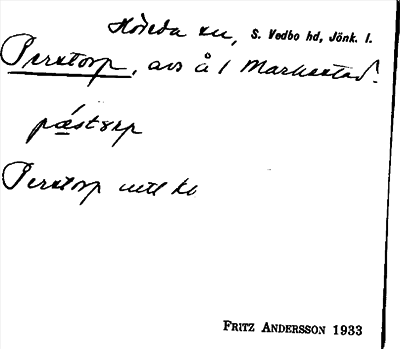 Höreda sn, S. Vedbo hd, Jönk. l.
Perstorp, avs å 1 Markestad.
pæ̀storp
Perstorp
FRITZ ANDERSSON 1933